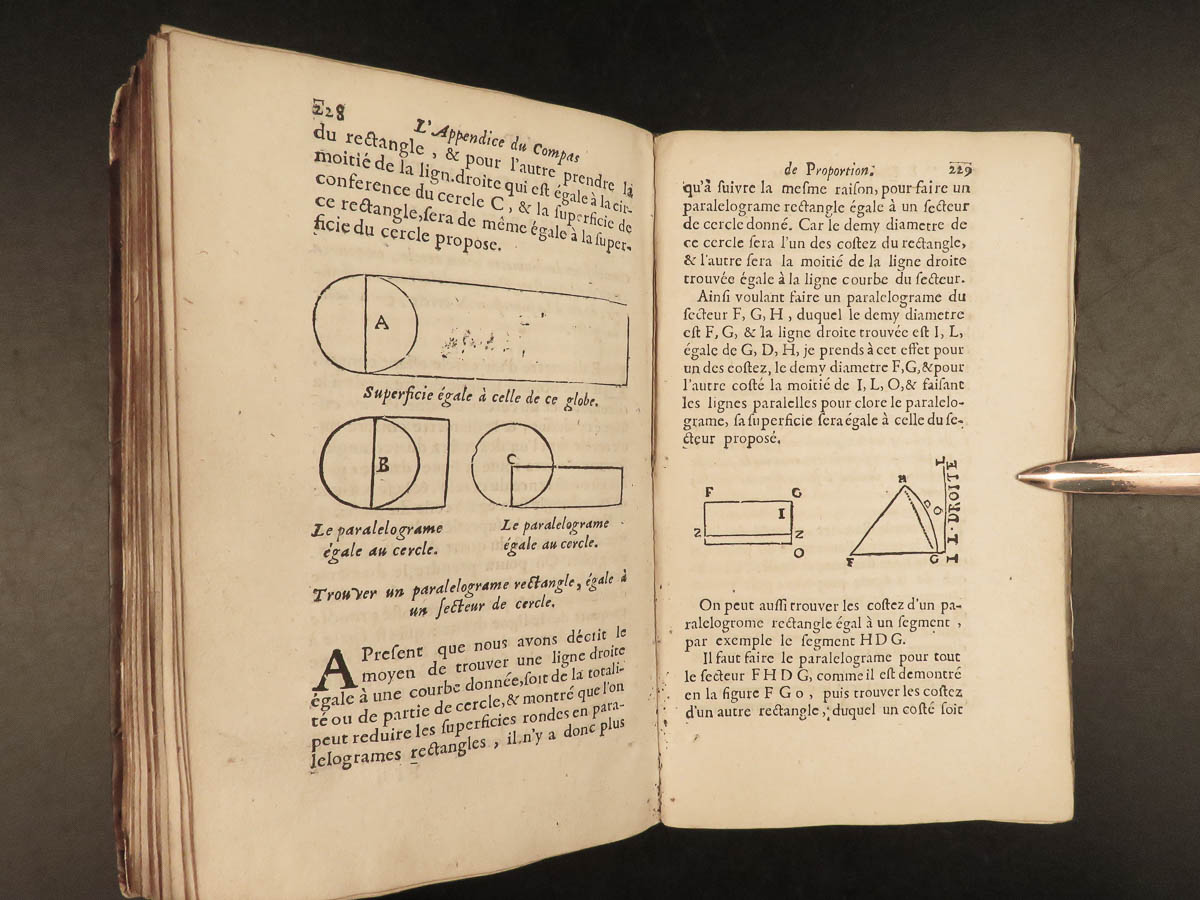 228
L'Appendice du Compas
du rectangle, & pour l'autre prendre la
moitié de la lign.droite qui est égale à la cir-
conference du cercle C, & la superficie de
ce rectangle, sera de même égale à la super-
ficie du cercle propose.
A
Superficie égale à celle de ce globe.
B
C
Le paralelograme
égale au cercle.
Le paralelograme
égale au cercle.
Trouver un paralelograme rectangle, égale à
un secteur de cercle.
A Present que nous avons décrit le
moyen de trouver une ligne droite
égale à une courbe donnée, soit de la totali-
té ou de partie de cercle, & montré que l'on
peut reduire les superficies rondes en para-
lelogrames rectangles, il.n'y a donc plus
de Proportion. 229
qu'à suivre la mesme raison, pour faire un
paralelograme rectangle égale à un secteur
de cercle donné. Car le demy diametre de
ce cercle sera l'un des costez du rectangle,
& l'autre sera la moitié de la ligne droite
trouvée égale à la ligne courbe du secteur.
Ainsi voulant faire un paralelograme du
secteur F, G, H, duquel le demy diametre
est F, G, & la ligne droite trouvée est I, L,
égale de G, D, H, je prends à cet effet pour
un des costez, le demy diametre F, G, & pour
l'autre costé la moitié de I, L, O, & faisant
les lignes paralelles pour clore le paralelo-
grame, sa superficie sera égale à celle du se-
cteur proposé.
F G
I
Z Z
O
H
O
F G
DROITE
On peut aussi trouver les costez d'un pa-
ralelogrome rectangle égal à un segment,
par exemple le segment HDG.
Il faut faire le paralelograme pour tout
le secteur FHDG, comme il est demontré
en la figure FGo, puis trouver les costez
d'un autre rectangle, duquel un costé soit